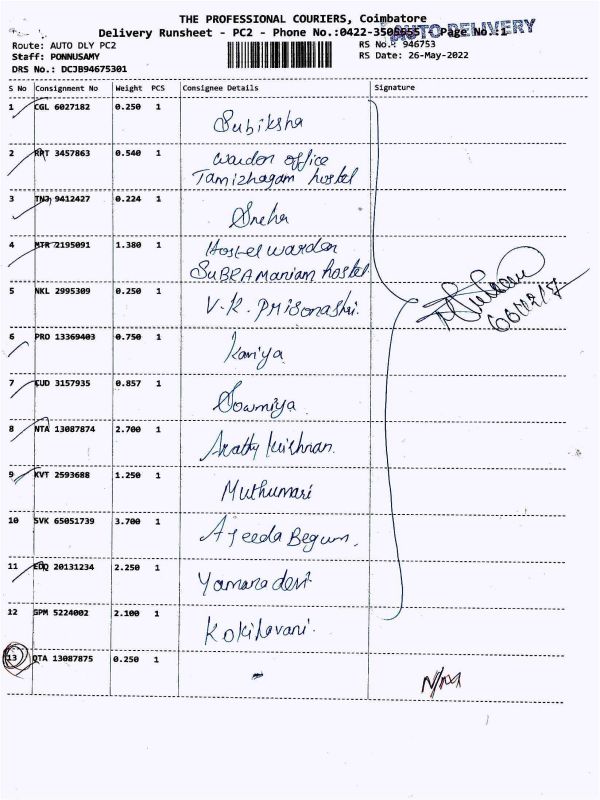 THE PROFESSIONAL COURIERS, Coimbatore
Delivery Runsheet - PC2 - Phone No.:0422-3505055 Page No.:1
AUTO DELIVERY
Route: AUTO DLY PC2 RS No.: 946753
Staff: PONNUSAMY RS Date: 26-May-2022
DRS No.: DCJB94675301
S No Consignment No Weight PCS Consignee Details Signature
1 CGL 6027182 0.250 1
Subiksha
2 RPT 3457863 0.540 1 warden office
Tamizhagam hostel
3 TNJ 9412427 0.224 1
Sneha
4 MTR 2195091 1.380 1 Hostel warden
SUBRAMANIAM hostel
5 NKL 2995309 0.250 1
V.K.
6 PRO 13369403 0.750 1
Kaniya
7 CUD 3157935 0.857 1
Sowmiya
8 NTA 13087874 2.700 1
Arathy Krishnan.
9 KVT 2593688 1.250 1
Muthumari
10 SVK 65051739 3.700 1
Ajeeda Begum.
11 EDQ 20131234 2.250 1
Yamuna devi
12 GPM 5224002 2.100 1
Kokilavani.
13 OTA 13087875 0.250 1